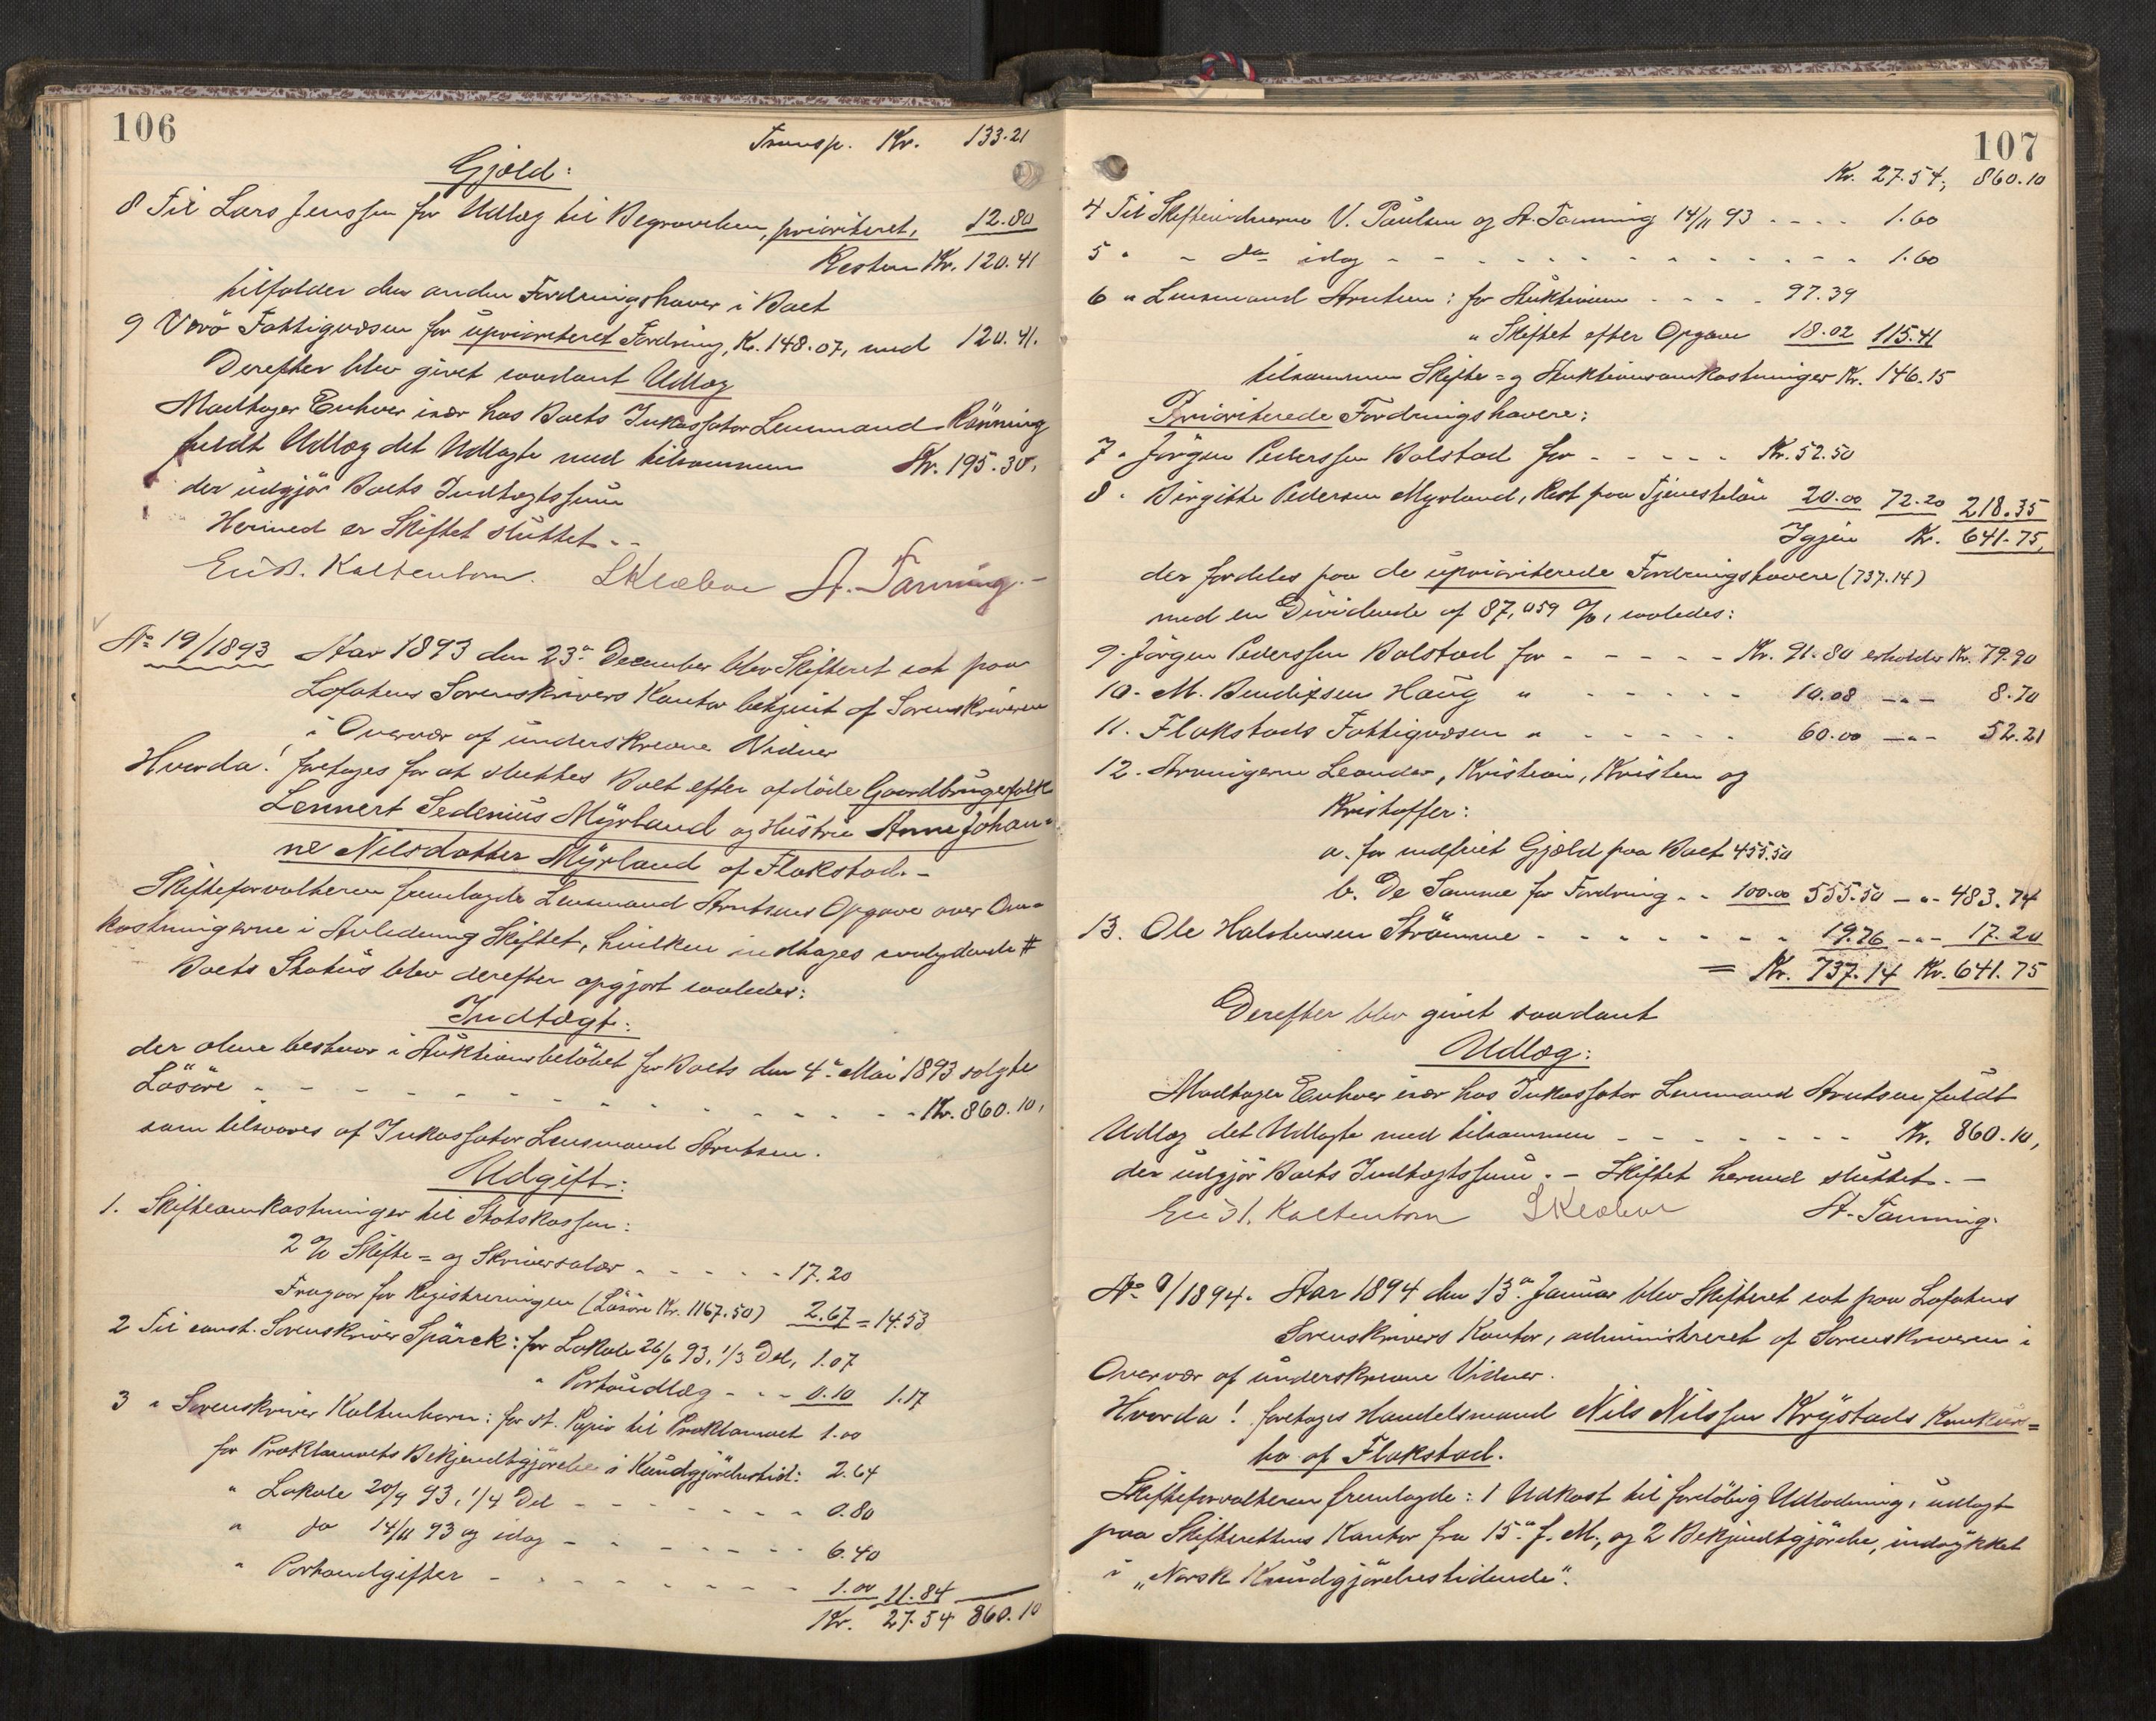 106
Transp. Kr. 133.21
Gjæld:
8 Til Lars Jenssen for Udlæg til Begravelsen, prioriteret, 12.80
Resten Kr. 120.41
tilfalder den anden Fordringshaver i Boet
9 Værö Fattigvæsen for uprioriteret Fordring, Kr. 148.07, med 120.41.
Derefter blev givet saadant Udlæg
Modtager Enhver især hos Boets Inkassator Lensmand Rönning
fuldt Udlæg det Udlagte med tilsammen Kr. 195.30,
der udgjör Boets Indtægtssum
Hermed er Skiftet sluttet. -
Kaltenborn. SKlæboe A. Tanning. -
No 19/1893 Aar 1893 den 23de December blev Skifteret sat paa
Lofotens Sorenskrivers Kontor betjent af Sorenskriveren
i Overvær af underskrevne Vidner
Hvorda! foretages for at sluttes Boet efter afdöde Gaardbrugerfolk
Lennert Sedenius Myrland og Hustru Anne Johan=
ne Nilsdatter Myrland af Flakstad. -
Skifteforvalteren fremlagde Lensmand Arntsens Opgave over Om=
kostningerne i Anledning Skiftet, hvilken indtages saalydende #
Boets Status blev derefter opgjort saaledes:
Indtægt:
der alene bestaar i Auktionsbelöbet for Boets den 4de Mai 1893 solgte
Lösöre - - - - - - - - - - - Kr. 860.10,
som tilsvares af Inkassator Lensmand Arntsen.
Udgift:
1. Skifteomkostninger til Statskassen:
2 % Skifte= og Skriversalær - - - - - 17.20
Fragaar for Registreringen (Lösöre Kr. 1167.50) 2.67 = 14.53
2 Til const. Sorenskriver Spärck: for Lokale 26/6 93, 1/3 Del, 1.07
" Portoudlæg - - - 0.10 1.17
3 " Sorenskriver Kaltenborn: for st. Papir til Proklamaet 1.00
for Proklamaets Bekjendtgjörelse i Kundgjörelsestid: 2.64
" Lokale 20/9 93, 1/4 Del - - - - - - 0.80
" do 14/11 93 og idag - - - - - - 6.40
" Portoudgifter - - - - - - - - 1.00 11.84
Kr. 27.54 860.10
107
Kr. 27.54, 860.10
4 Til Skiftevidnerne V. Paulsen og A. Tanning 14/11 93 - - - - 1.60
5 " - do idag - - - - - - - - - - - - 1.60
6 " Lensmand Arntsen: for Auktionen - - - - 97.39
" Skiftet efter Opgave 18.02 115.41
tilsammen Skifte= og Auktionsomkostninger Kr. 146.15
Prioriterede Fordringshavere:
7 " Jörgen Pederssen Bolstad for - - - - - Kr. 52.50
8 " Birgitte Pedersen Myrland, Rest paa Tjenestelön 20.00 72.20 218.35
Igjen Kr. 641.75,
der fordeles paa de uprioriterede Fordringshavere (737.14)
med en Dividende af 87,059 %, saaledes:
9. Jörgen Pederssen Bolstad for - - - - - Kr. 91.80 erholder Kr. 79.90
10. M. Bendixsen Haug " - - - - - - 10.08 - " - 8.70
11. Flakstads Fattigvæsen " - - - - - - 60.00 - " - 52.21
12. Arvingerne Leonder, Kristian, Kristen og
Kristoffer:
a. for indfriet Gjæld paa Boet 455.50
b. De Samme for Fordring - - 100.00 555.50 - " - 483.74
13. Ole Halstensen Strömme - - - - - - - - 19.76 - " - 17.20
= Kr. 737.14 Kr. 641.75
Derefter blev givet saadant
Udlæg:
Modtager Enhver især hos Inkassator Lensmand Arntsen fuldt
Udlæg det Udlagte med tilsammen - - - - - - - Kr. 860.10,
der udgjör Boets Indtægtssum. - Skiftet hermed sluttet. -
Kaltenborn SKlæboe A. Tanning.
No 9/1894. Aar 1894 den 13de Januar blev Skifteret sat paa Lofotens
Sorenskrivers Kontor, administreret af Sorenskriveren i
Overvær af underskrevne Vidner.
Hvorda! foretages Handelsmand Nils Nilssen Krystads Konkurs=
bo af Flakstad.
Skifteforvalteren fremlagde: 1 Udkast til forelöbig Udlodning, udlagt
paa Skifterettens Kontor fra 15de f. M., og 2 Bekjendtgjörelse, indrykket
i "Norsk Kundgjörelsestidende".